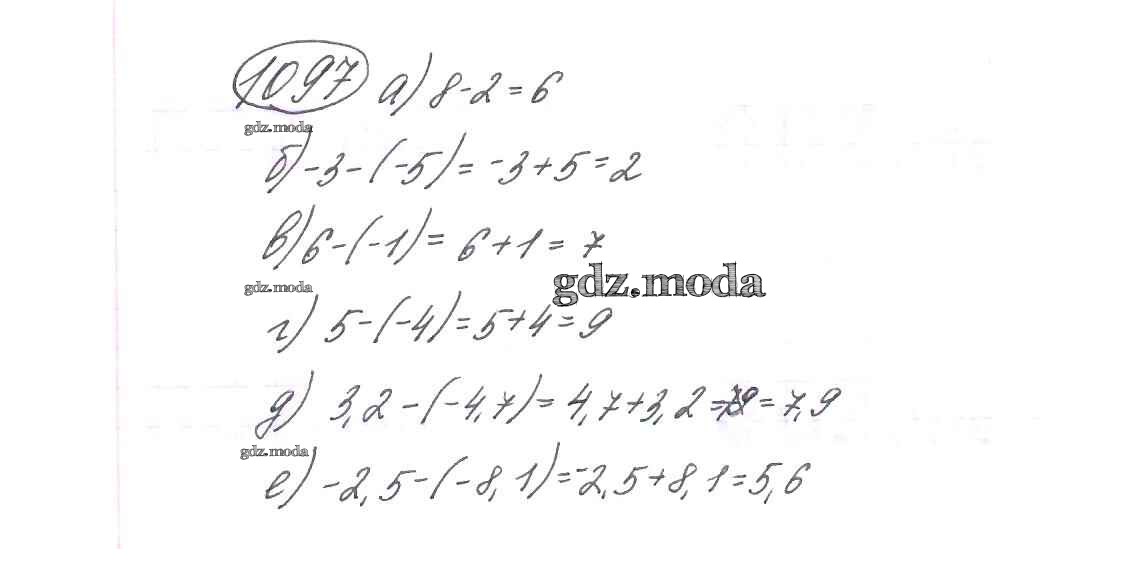 1097 а) 8-2=6
gdz.moda
б) -3-(-5)= -3+5=2
в) 6-(-1)= 6+1=7
gdz.moda
gdz.moda
г) 5-(-4)=5+4=9
д) 3,2-(-4,7)= 4,7+3,2= =7,9
gdz.moda
е) -2,5-(-8,1)=-2,5+8,1=5,6